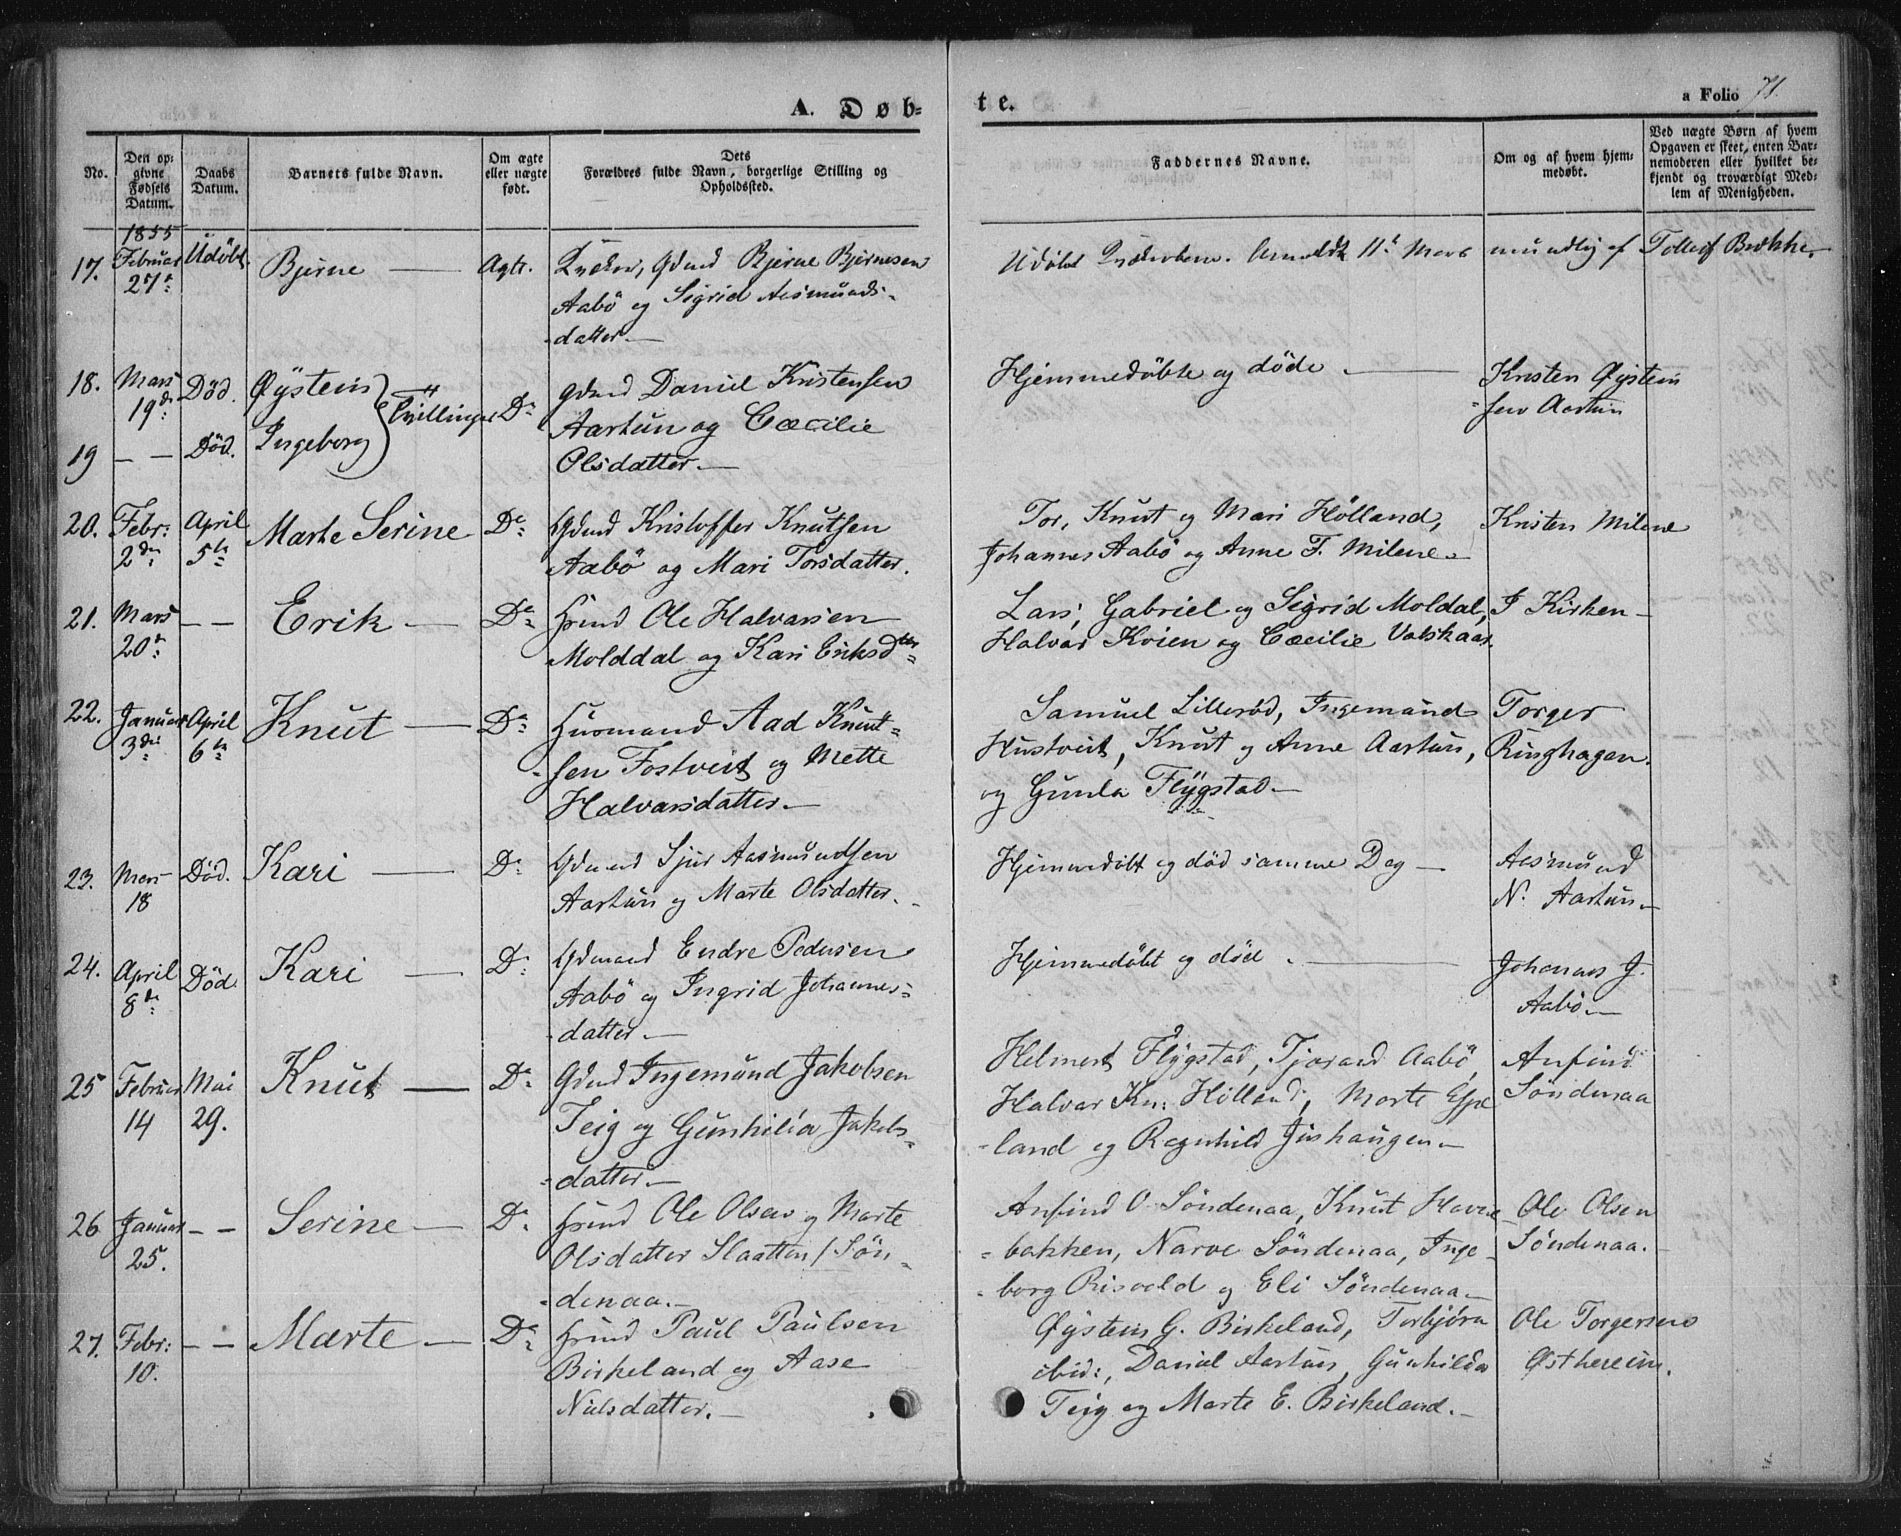 A. Døb=
te.
a Folio 71.
No.
Den op=
givne
Fødsels
Datum.
Daabs
Datum.
Barnets fulde Navn.
Om ægte
eller uægte
født.
Dets
Forældres fulde Navn, borgerlige Stilling og
Opholdssted.
Faddernes Navne.
Om og af hvem hjem=
medøbt.
Ved uægte Børn af hvem
Opgaven er skeet, enten Bar=
nemoderen eller hvilket be=
kjendt og troværdigt Med=
lem af Menigheden.
1855
17. Februar
27
Udöbt.
Bjerne —
Ægte.
Qvæker, Gdmd Bjerne Bjernesen
Aabö og Sigrid Aasmunds-
-datter.—
Udöbt Anmeldt 11te Mars mundlig af Tollef Brekke.
18. Mars
19de
Död.
Øystein
Tvillinger
De
Gdmd Daniel Kristensen
Aartun og Cæcilie
Olsdatter.—
Hjemmedöbte og döde —
Kristen Øystein
-sen Aartun
19 — — Död. Ingeborg
20. Febr:
2den
April
5te
Marte Serine
De
Gdmd Kristoffer Knutsen
Aabö og Mari Torsdatter.
Tor, Knut og Mari Hölland,
Johannes Aabö og Anne T. Milene.—
Kristen Milene
21. Mars
20de
— —
Erik —
De
Hrmd Ole Halvarsen
Molddal og Kari Eriksdtr
Lars, Gabriel og Sigrid Moldal,
Halvar Kvien og Cæcilie Valskaar.
I Kirken—
22. Januar
3die
April
6te
Knut —
De
Husmand Aad Knut=
-sen Fostveit og Mette
Halvarsdatter.—
Samuel Lilleröd, Ingemund
Hustveit, Knut og Anne Aartun,
og Gunla Flÿgstad—
Torger
Ringhagen.
23. Mars
18
Död.
Kari —
De
Gdmand Sjur Aasmundsen
Aartun og Marte Olsdatter.—
Hjemmedöbt og död samme Dag—
Aasmund
N. Aartun.—
24. April
8de
Död.
Kari —
De
Gdmand Endre Pedersen
Aabö og Ingrid Johannes=
-datter.—
Hjemmedöbt og död —
Johannes J.
Aabö.—
25 Februar
14
Mai
29.
Knut —
De
Gdmd Ingemund Jakobsen
Teig og Gunhilda Jakobs-
-datter.—
Helmert Flÿgstad, Tjorand Aabö,
Halvar Kn: Hölland, Marte Espe
-land og Regnhild Jishaugen—
Anfind
Söndenaa
26 Januar
25.
— —
Serine —
De
Hrmd Ole Olsen og Marte
Olsdatter Slaatten/Sön-
-denaa.—
Anfind O. Söndenaa, Knut Havre
-bakken, Narve Söndenaa, Inge-
-borg Risvold og Eli Söndenaa—
Ole Olsen
Söndenaa.
27. Febr:
10.
— —
Marte —
De
Hrmd Paul Paulsen
Birkeland og Aase
Nielsdatter.—
Øystein G. Birkeland, Torbjörn
ibid:, Daniel Aartun, Gunhilda
Teig og Marte E. Birkeland.—
Ole Torgersen
Østhereim.